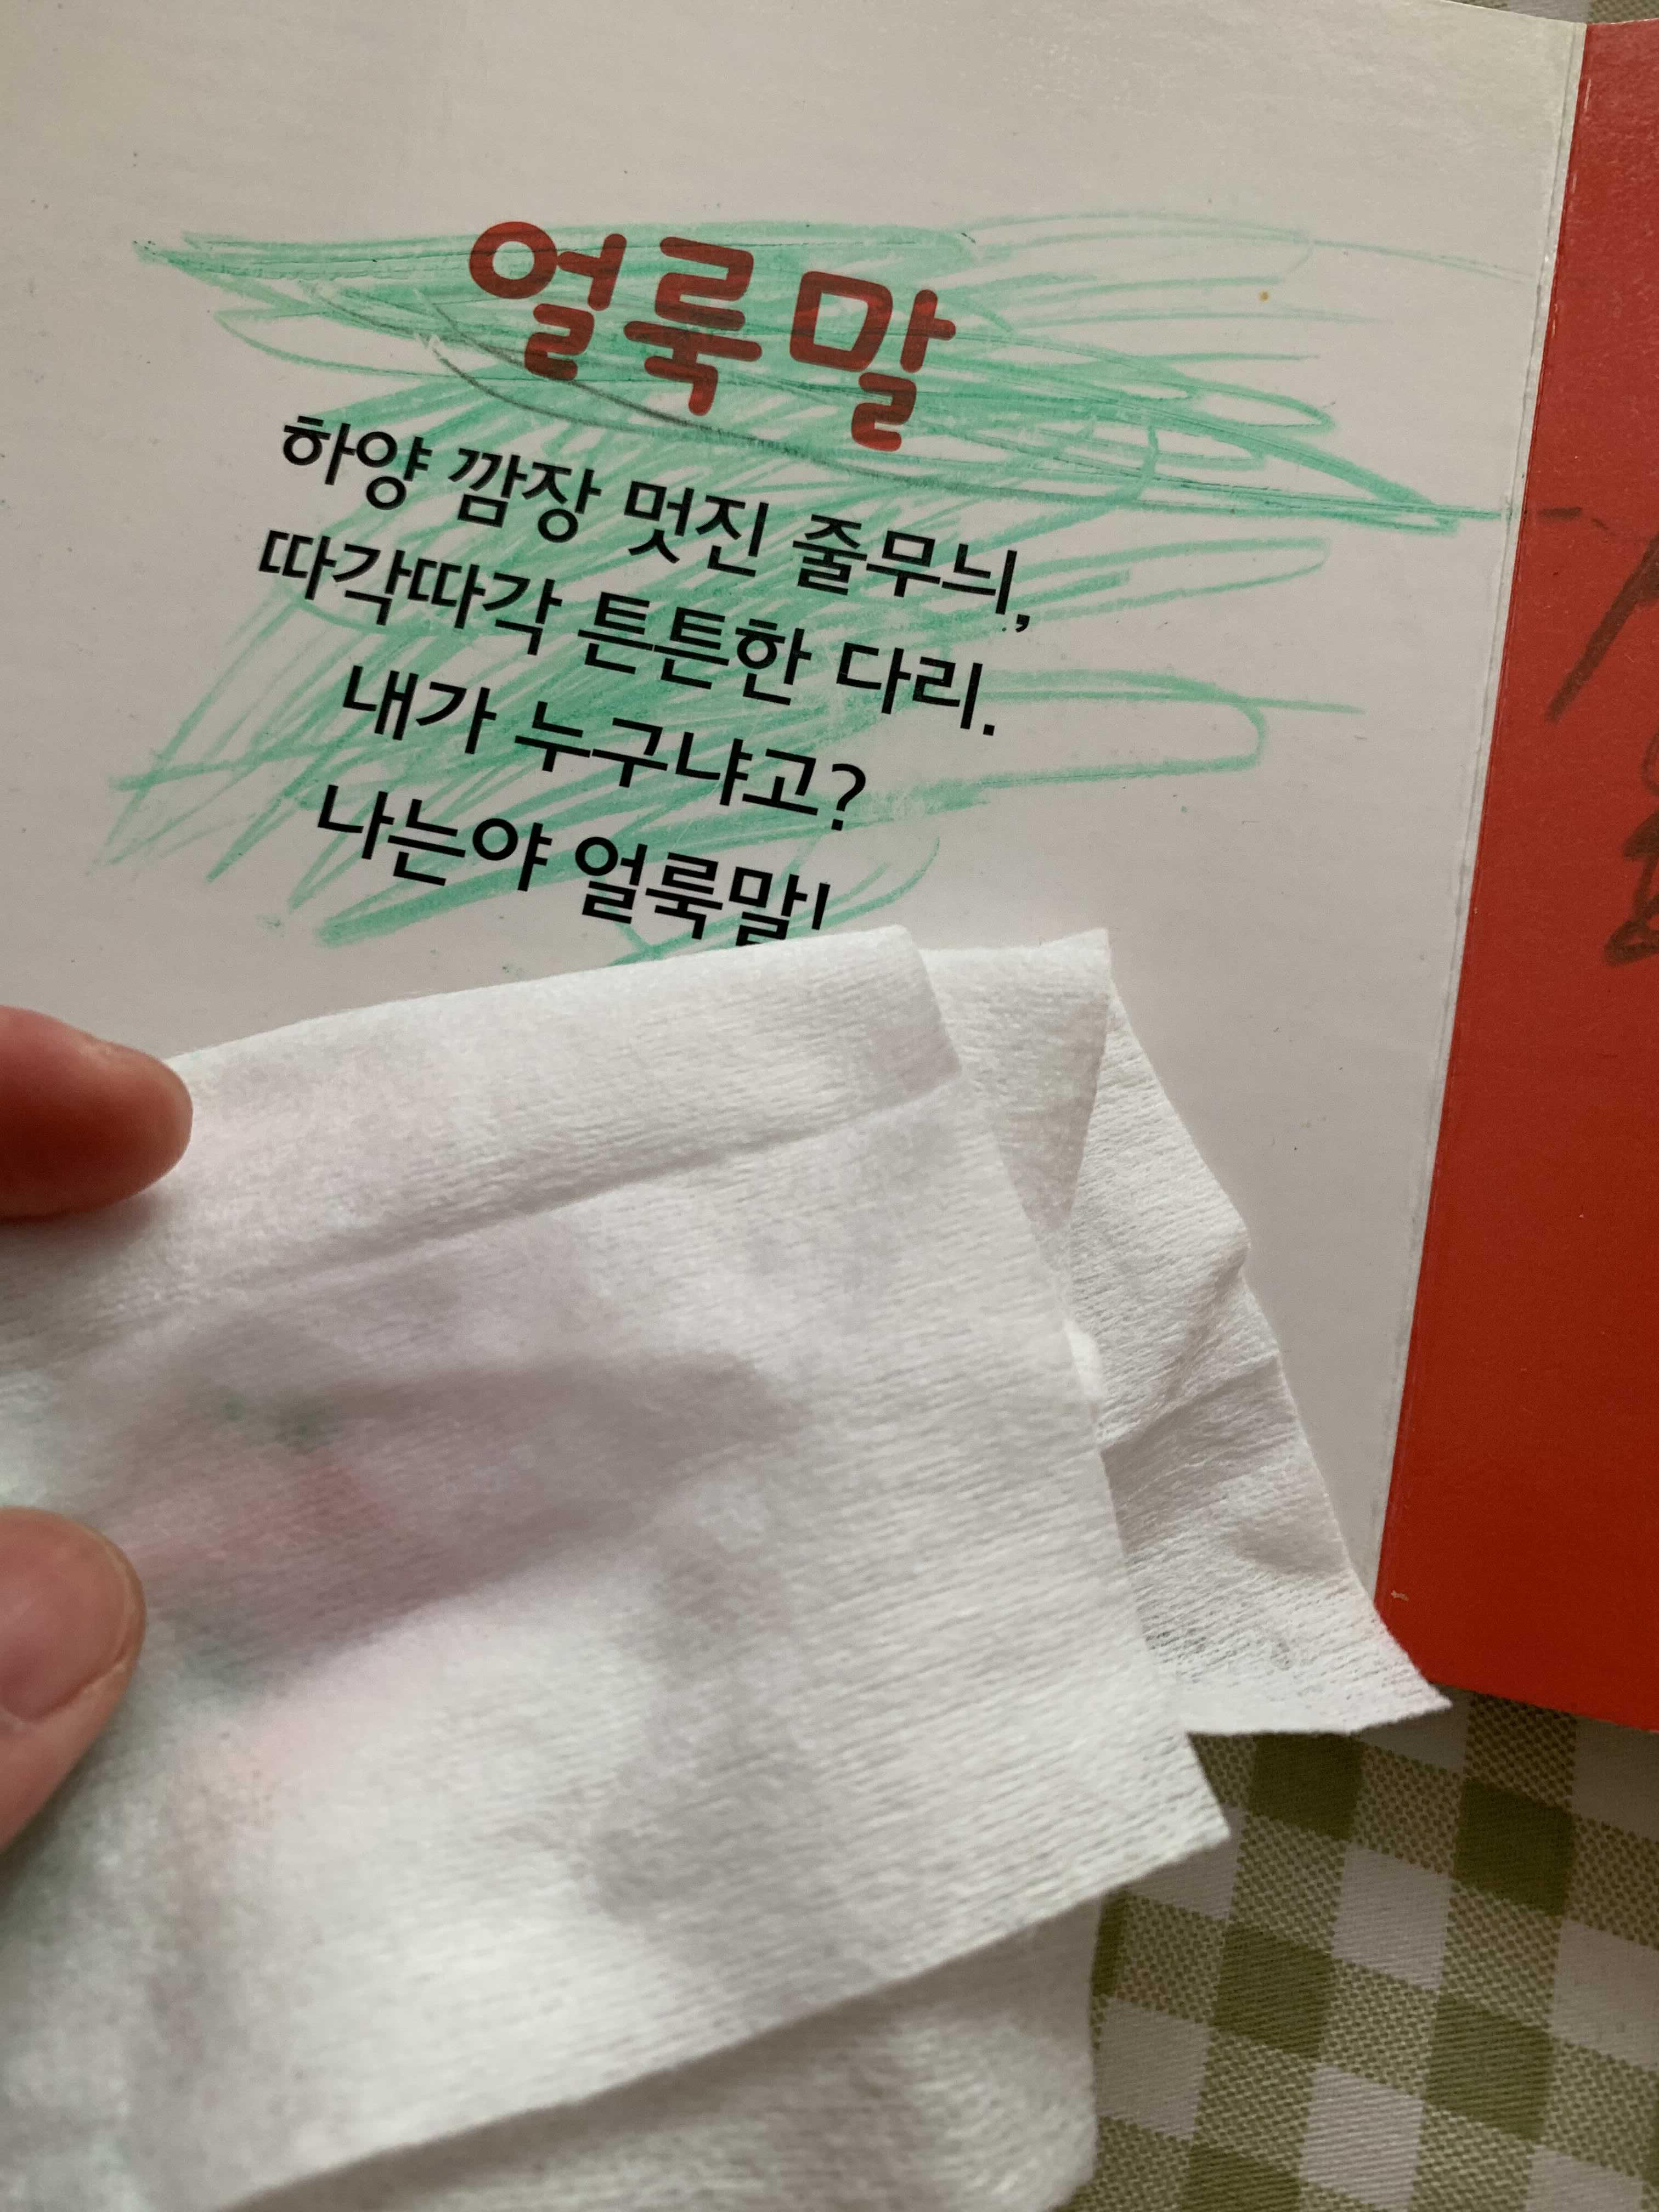 얼룩말
하양 깜장 멋진 줄무늬,
따각따각 튼튼한 다리.
내가 누구냐고?
나는야 얼룩말!